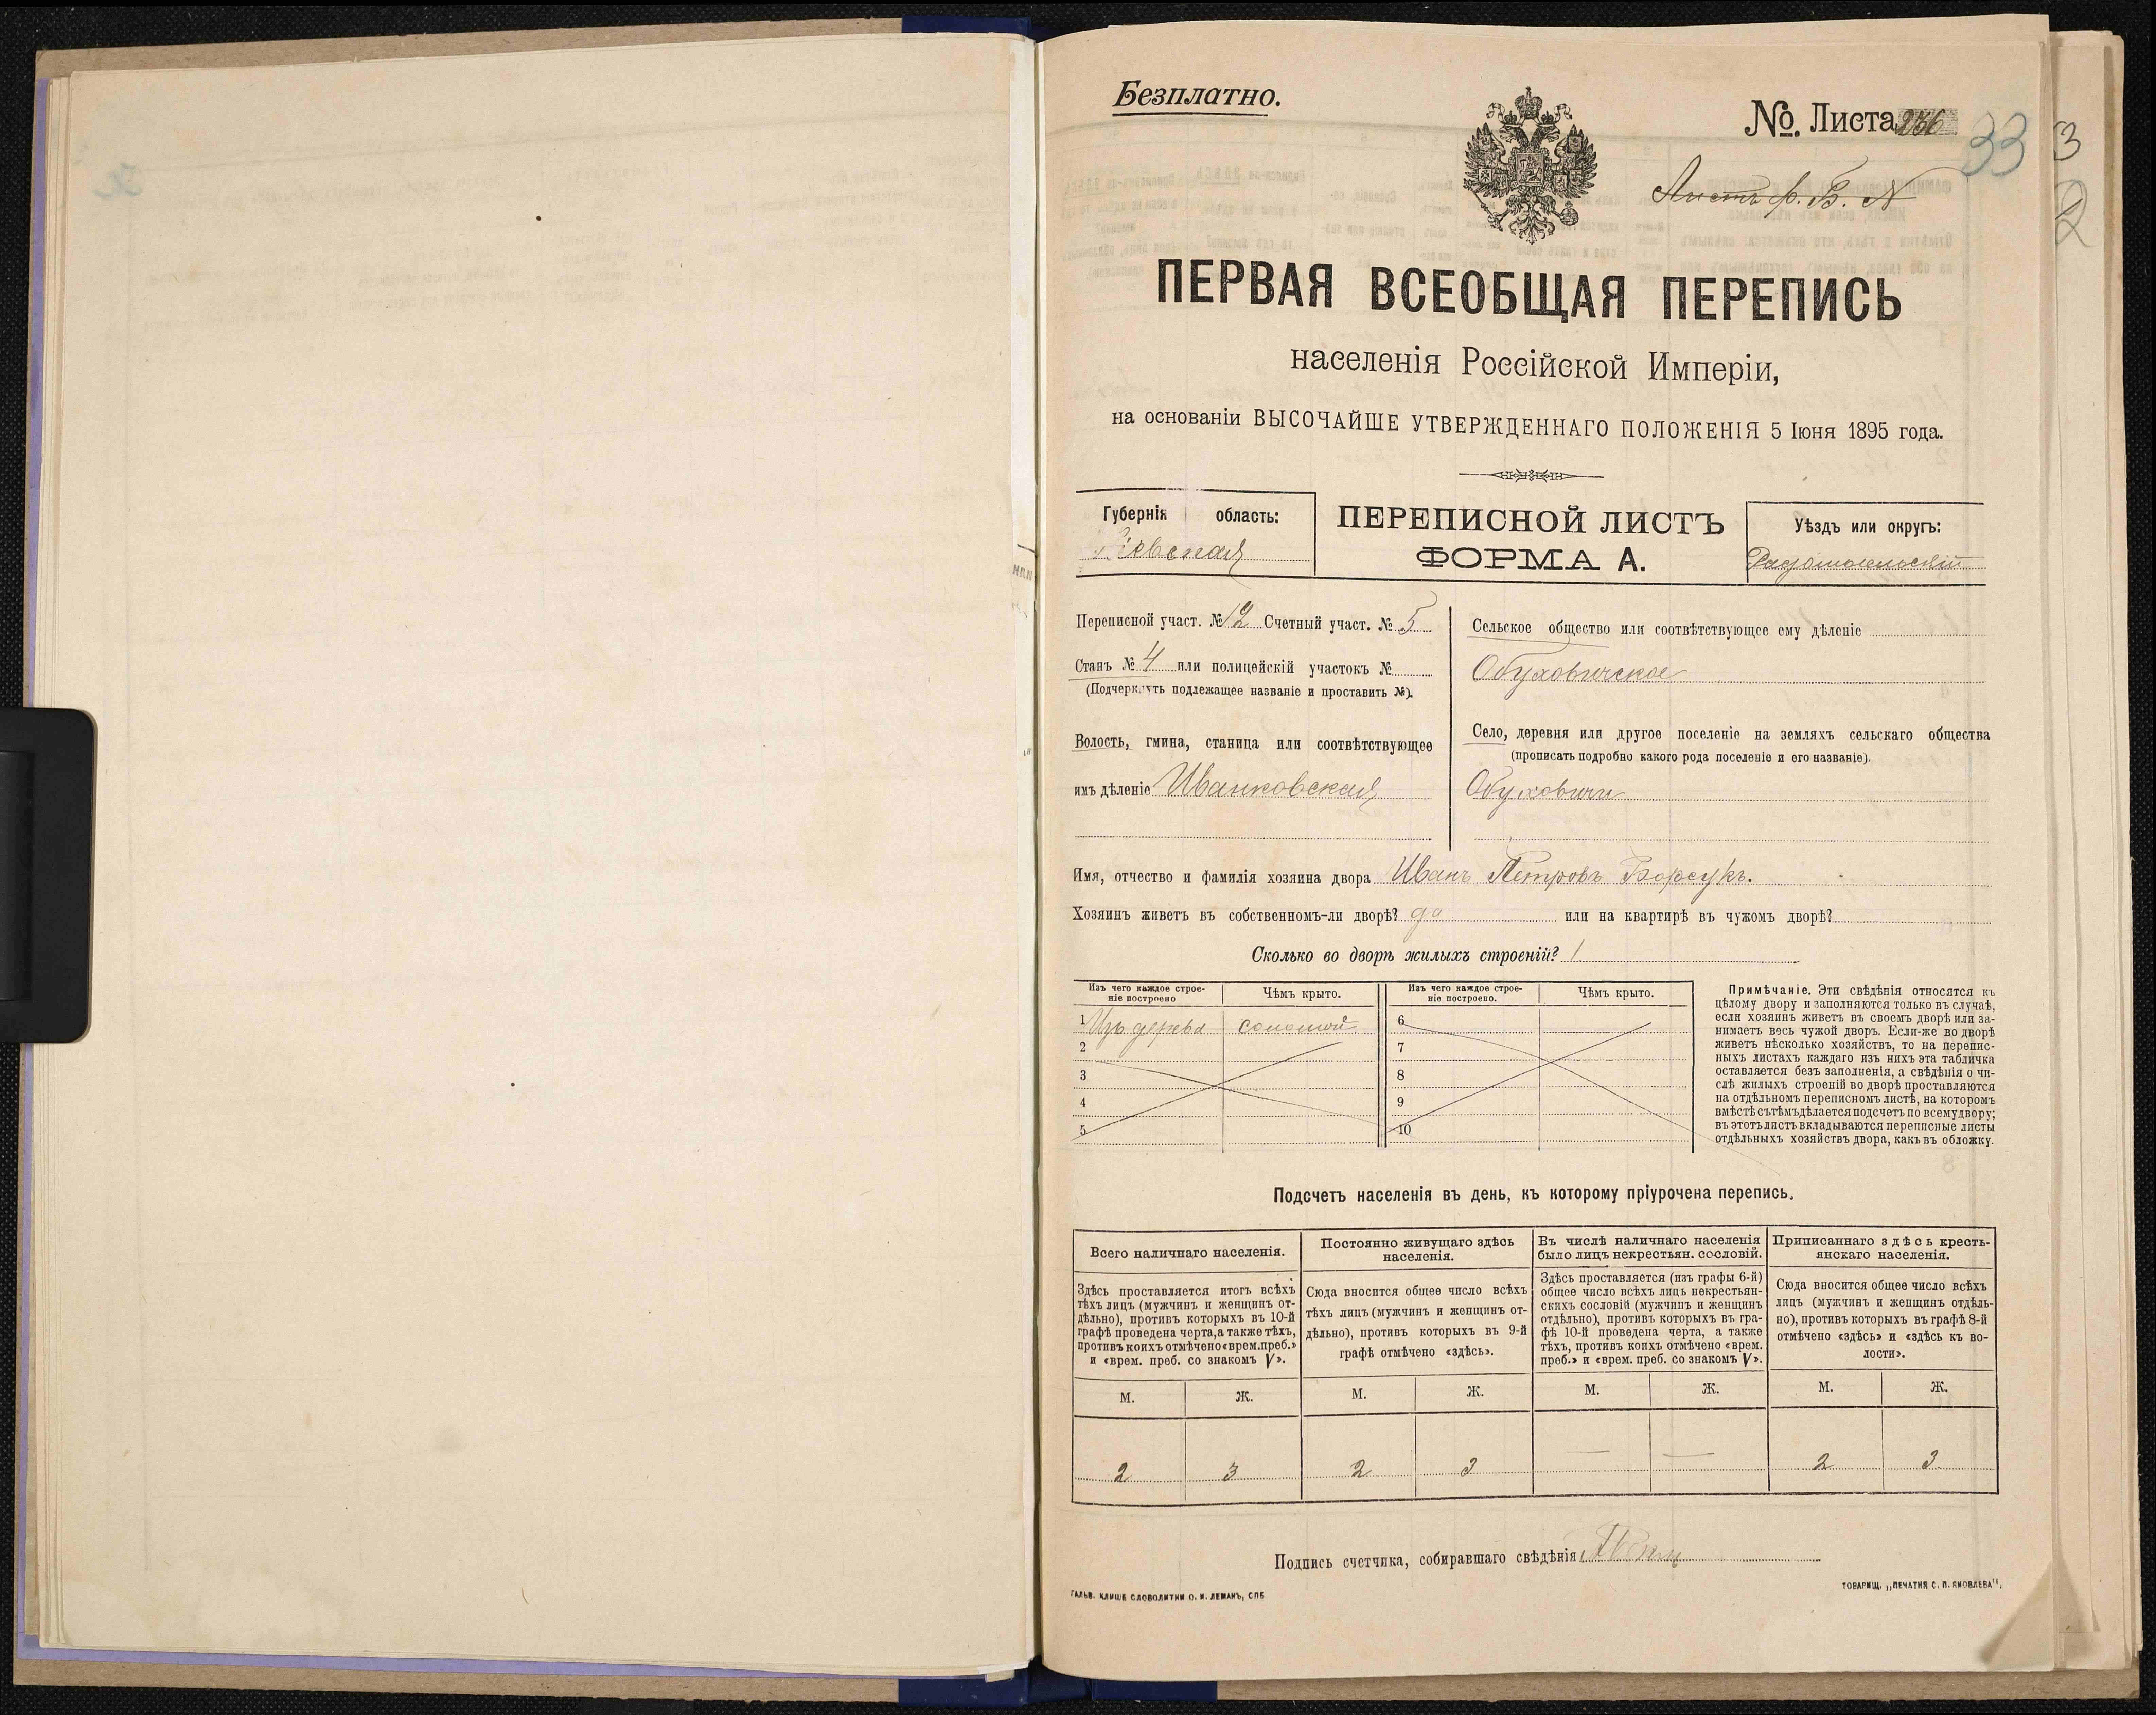 Безплатно.
№ Листа 236
33
Листъ ф. Б. N
ПЕРВАЯ ВСЕОБЩАЯ ПЕРЕПИСЬ
населенія Россійской Имперіи,
на основаніи ВЫСОЧАЙШЕ УТВЕРЖДЕННАГО ПОЛОЖЕНІЯ 5 Іюня 1895 года.
Губернія область:
Кіевская
ПЕРЕПИСНОЙ ЛИСТЪ
ФОРМА А.
Уѣздъ или округъ:
Радомысльскій
Переписной участ. № 12 Счетный участ. № 5
Станъ № 4 или полицейскій участокъ №
(Подчеркнуть подлежащее названіе и проставить №).
Волость, гмина, станица или соотвѣтствующее
имъ дѣленіе Иванковская
Сельское общество или соотвѣтствующее ему дѣленіе
Обуховичское
Село, деревня или другое поселеніе на земляхъ сельскаго общества
(прописать подробно какого рода поселеніе и его названіе).
Обуховичи
Имя, отчество и фамилія хозяина двора Иванъ Петровъ Борсукъ.
Хозяинъ живетъ въ собственномъ-ли дворѣ? да или на квартирѣ въ чужомъ дворѣ?
Сколько во дворѣ жилыхъ строеній? 1
Изъ чего каждое строе-
ніе построено
Чѣмъ крыто.
Изъ чего каждое строе-
ніе построено.
Чѣмъ крыто.
1 Изъ дерева соломой
2
3
4
5
6
7
8
9
10
Примѣчаніе. Эти свѣдѣнія относятся къ
цѣлому двору и заполняются только въ случаѣ,
если хозяинъ живетъ въ своемъ дворѣ или за-
нимаетъ весь чужой дворъ. Если-же во дворѣ
живетъ нѣсколько хозяйствъ, то на перепис-
ныхъ листахъ каждаго изъ нихъ эта табличка
оставляется безъ заполненія, а свѣдѣнія о чи-
слѣ жилыхъ строеній во дворѣ проставляются
на отдѣльномъ переписномъ листѣ, на которомъ
вмѣстѣ съ тѣмъ дѣлается подсчетъ по всему двору;
въ этотъ листъ вкладываются переписные листы
отдѣльныхъ хозяйствъ двора, какъ въ обложку.
Подсчетъ населенія въ день, къ которому пріурочена перепись.
Всего наличнаго населенія.
Здѣсь проставляется итогъ всѣхъ
тѣхъ лицъ (мужчинъ и женщинъ от-
дѣльно), противъ которыхъ въ 10-й
графѣ проведена черта, а также тѣхъ,
противъ коихъ отмѣчено «врем. преб.»
и «врем. преб. со знакомъ V».
Постоянно живущаго здѣсь
населенія.
Сюда вносится общее число всѣхъ
тѣхъ лицъ (мужчинъ и женщинъ от-
дѣльно), противъ которыхъ въ 9-й
графѣ отмѣчено «здѣсь».
Въ числѣ наличнаго населенія
было лицъ некрестьян. сословій.
Здѣсь проставляется (изъ графы 6-й)
общее число всѣхъ лицъ некрестьян-
скихъ сословій (мужчинъ и женщинъ
отдѣльно), противъ которыхъ въ гра-
фѣ 10-й проведена черта, а также
тѣхъ, противъ коихъ отмѣчено «врем.
преб.» и «врем. преб. со знакомъ V».
Приписаннаго здѣсь кресть-
янскаго населенія.
Сюда вносится общее число всѣхъ
лицъ (мужчинъ и женщинъ отдѣль-
но), противъ которыхъ въ графѣ 8-й
отмѣчено «здѣсь» и «здѣсь къ во-
лости».
М. Ж. М. Ж. М. Ж. М. Ж.
2 3 2 3 — — 2 3
Подпись счетчика, собиравшаго свѣдѣнія
ГАЛЬВ. КЛИШЕ СЛОВОЛИТНИ О. И. ЛЕМАНЪ, СПБ
ТОВАРИЩ. „ПЕЧАТНЯ С. П. ЯКОВЛЕВА".